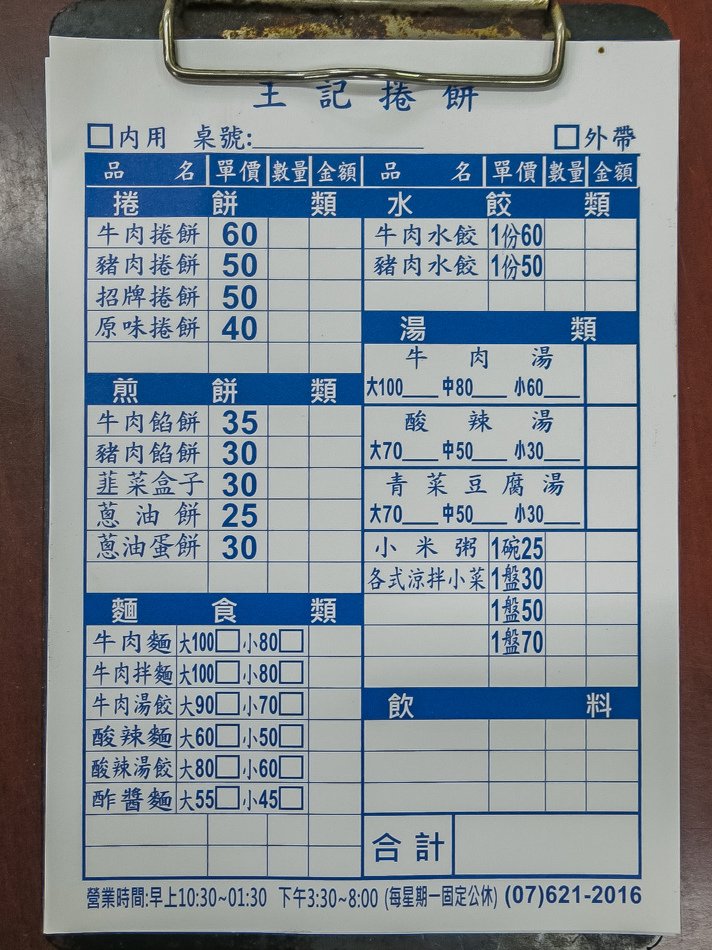 王記捲餅
□內用 桌號:__________ □外帶
品名 單價 數量 金額 品名 單價 數量 金額
捲餅類
牛肉捲餅 60
豬肉捲餅 50
招牌捲餅 50
原味捲餅 40
煎餅類
牛肉餡餅 35
豬肉餡餅 30
韮菜盒子 30
蔥油餅 25
蔥油蛋餅 30
麵食類
牛肉麵 大100□小80□
牛肉拌麵 大100□小80□
牛肉湯餃 大90□小70□
酸辣麵 大60□小50□
酸辣湯餃 大80□小60□
酢醬麵 大55□小45□
水餃類
牛肉水餃 1份60
豬肉水餃 1份50
湯類
牛肉湯
大100____中80____小60____
酸辣湯
大70____中50____小30____
青菜豆腐湯
大70____中50____小30____
小米粥 1碗25
各式涼拌小菜 1盤30
1盤50
1盤70
飲料
合計
營業時間:早上10:30~01:30 下午3:30~8:00 (每星期一固定公休) (07)621-2016